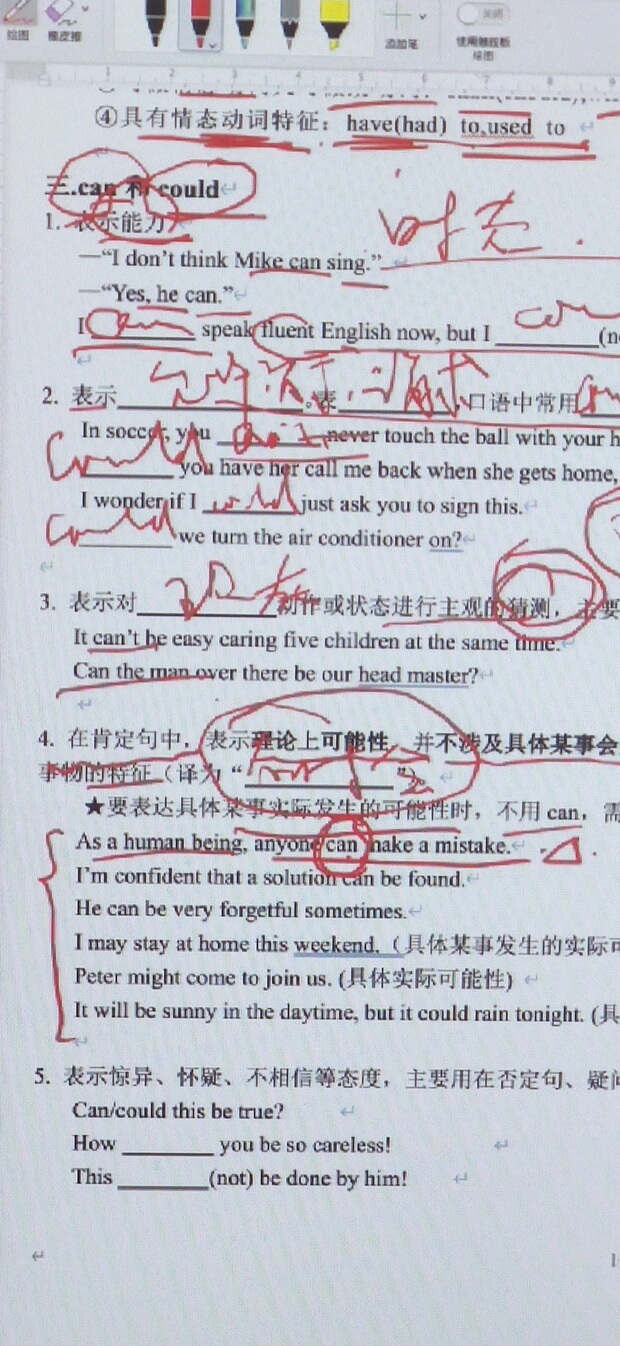 绘图 橡皮擦 添加笔 关闭 使用触控板绘图
④具有情态动词特征：have(had) to,used to
三.can 和 could
1. 表示能力
时态.
—“I don’t think Mike can sing.”
—“Yes, he can.”
I can speak fluent English now, but I ______(n
2. 表示______。表______，口语中常用
In soccer, you ______ never touch the ball with your h
could you have her call me back when she gets home,
I wonder if I could just ask you to sign this.
could we turn the air conditioner on?
3. 表示对现有动作或状态进行主观的猜测，主要
It can’t be easy caring five children at the same time.
Can the man over there be our head master?
4. 在肯定句中，表示理论上可能性，并不涉及具体某事会
事物的特征（译为“______”
★要表达具体某事实际发生的可能性时，不用 can，需
As a human being, anyone can make a mistake.
I’m confident that a solution can be found.
He can be very forgetful sometimes.
I may stay at home this weekend.（具体某事发生的实际可
Peter might come to join us. (具体实际可能性)
It will be sunny in the daytime, but it could rain tonight. (具
5. 表示惊异、怀疑、不相信等态度，主要用在否定句、疑问
Can/could this be true?
How ______ you be so careless!
This ______(not) be done by him!